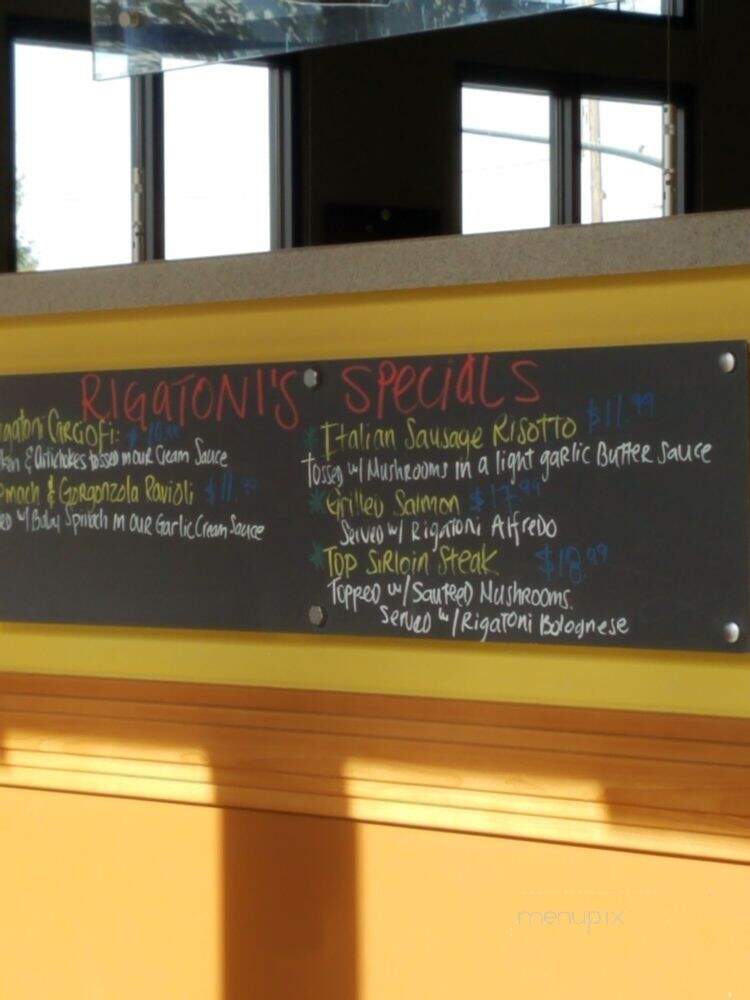 RIGATONI'S SPECIALS
Carciofi:
& Artichokes tossed in our Cream Sauce
& Gorgonzola Ravioli $11.99
w/ Baby Spinach in our Garlic Cream Sauce
Italian Sausage Risotto $11.99
Tossed w/ Mushrooms in a light garlic Butter Sauce
Grilled Salmon $17.99
Served w/ Rigatoni Alfredo
Top Sirloin Steak $18.99
Topped w/ Sauteed Mushrooms.
Served w/ Rigatoni Bolognese
menupix